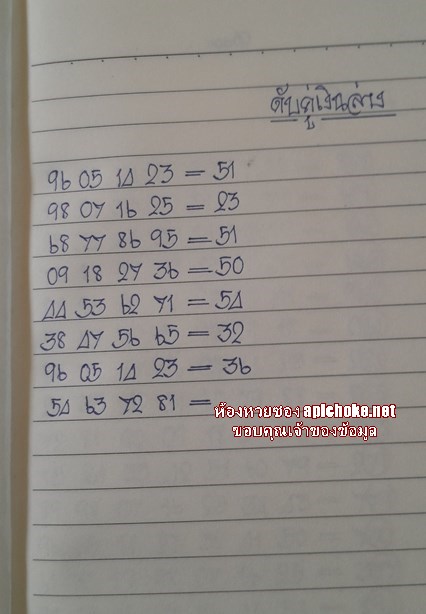 ดับคู่เงินล่าง
96 05 14 23 = 51
98 07 16 25 = 23
68 77 86 95 = 51
09 18 27 36 = 50
44 53 62 71 = 54
38 47 56 65 = 32
96 05 14 23 = 36
54 63 72 81 =
ห้องหวยซอง apichoke.net
ขอบคุณเจ้าของข้อมูล